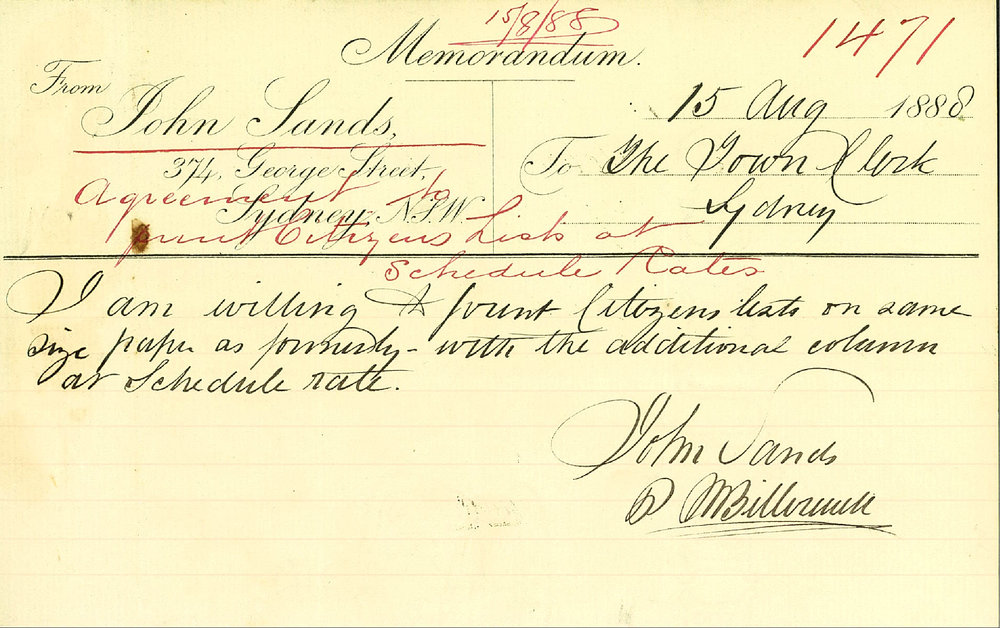 15/8/88
1471
Memorandum.
From
John Sands,
374, George Street,
Sydney, N.S.W.
15 Aug 1888
To The Town Clerk
Sydney
Agreement to
print Citizens Lists at
Schedule Rates
I am willing to print Citizens lists on same
size paper as formerly - with the additional column
at Schedule rate.
John Sands